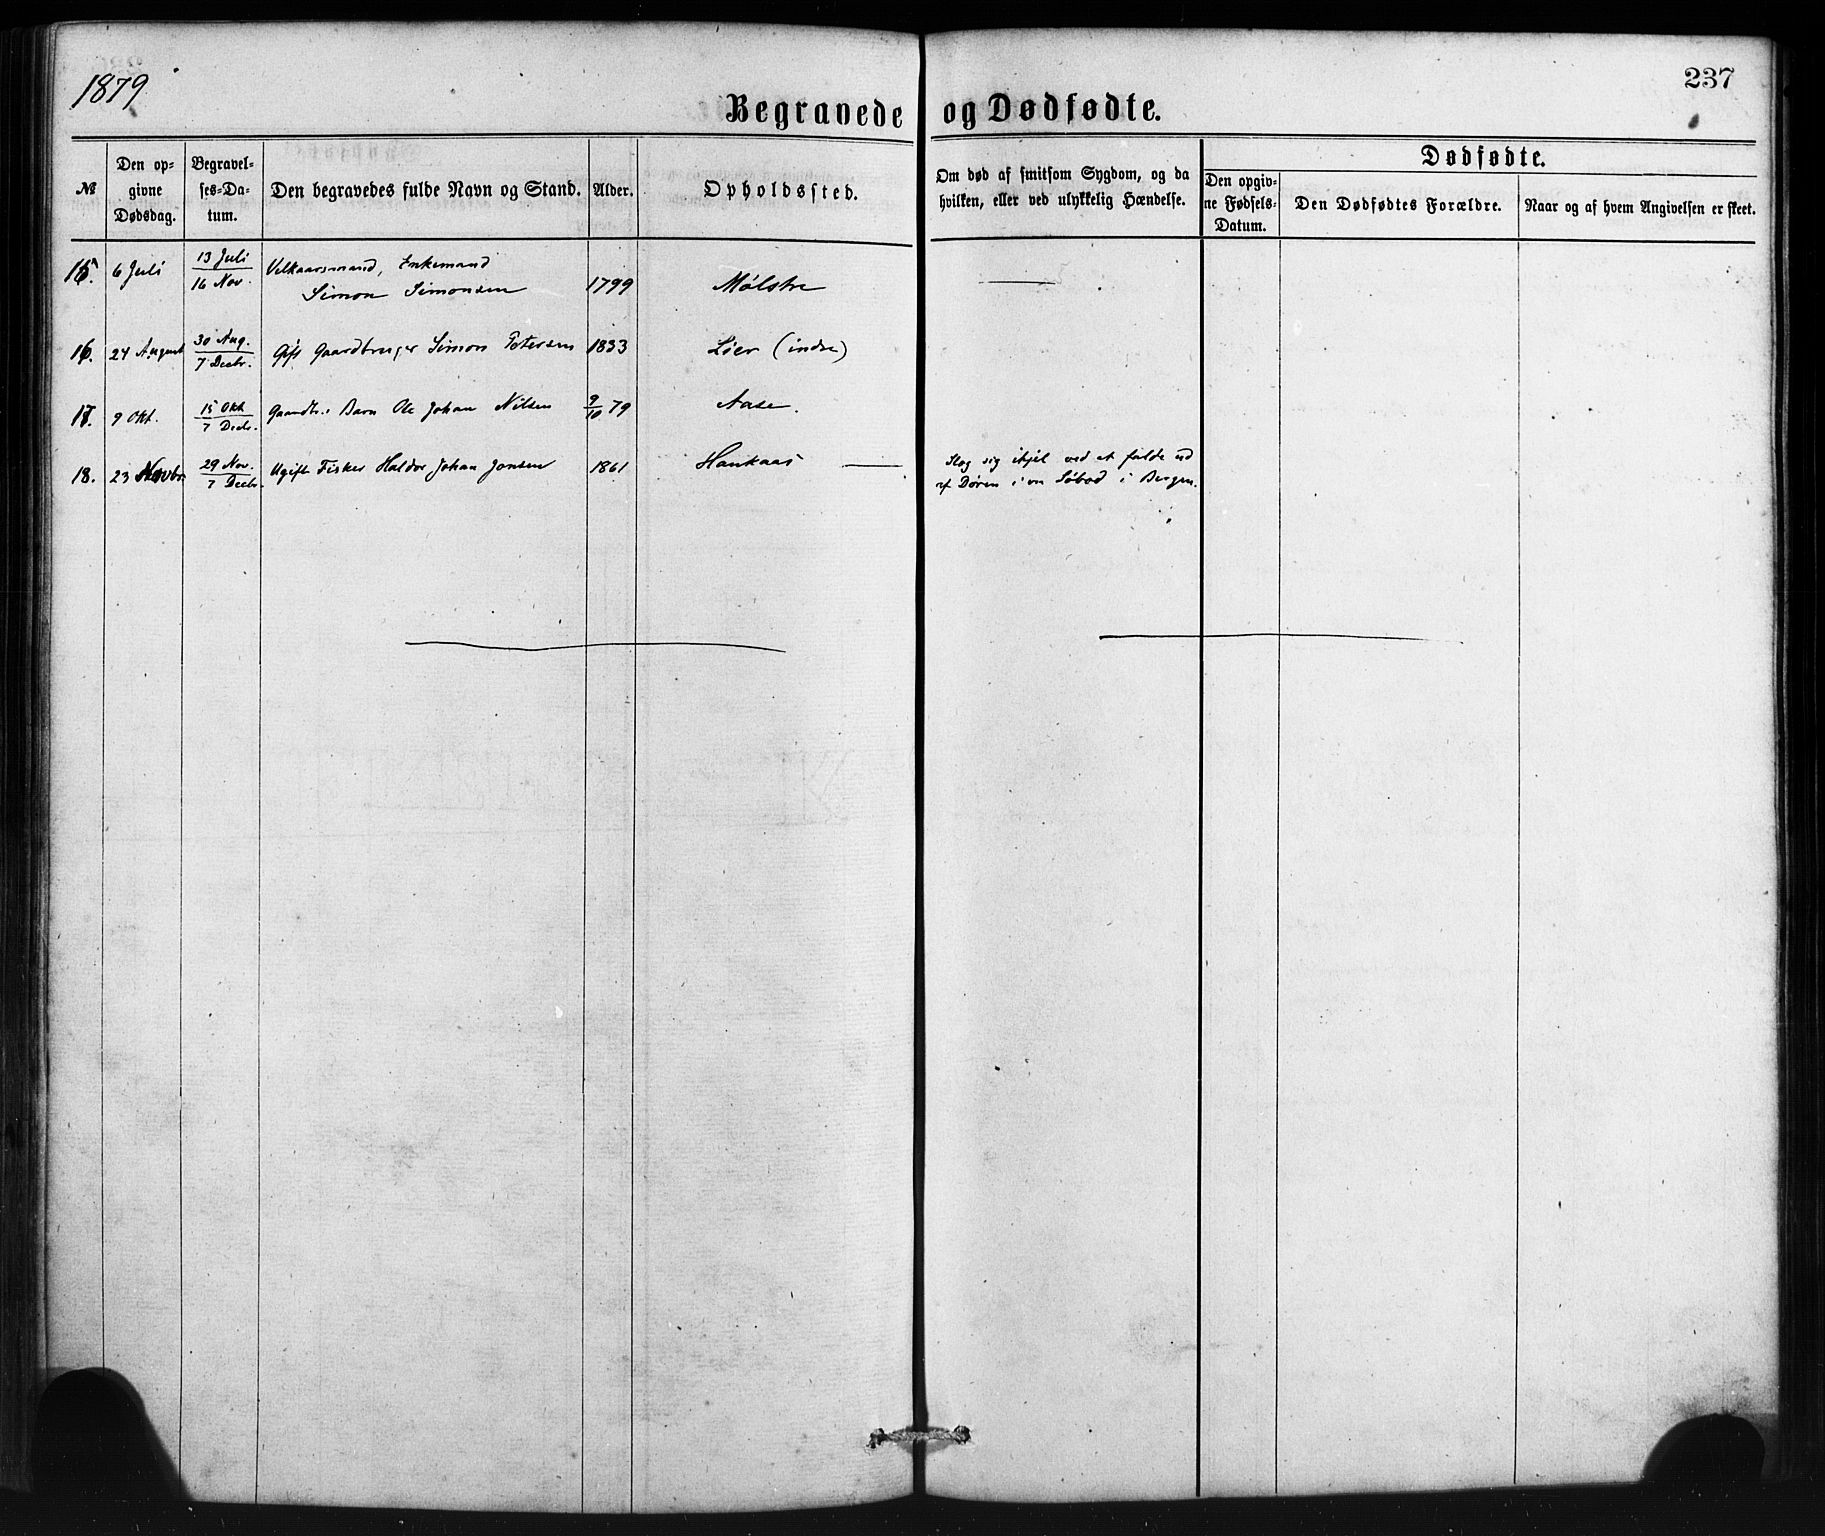 1879
237
Begravede og Dødfødte.
№
Den op-
givne
Dødsdag.
Begravel-
ses-Da-
tum.
Den begravedes fulde Navn og Stand.
Alder.
Opholdssted.
Om død af smitsom Sygdom, og da
hvilken, eller ved ulykkelig Hændelse.
Dødfødte.
Den opgiv-
ne Fødsels-
Datum.
Den Dødfødtes Forældre.
Naar og af hvem Angivelsen er skeet.
15. 6 Juli 13 Juli
16 Nov. Velkaarsmand, Enkemand
Simon Simonsen 1799 Mølstre
16. 24 August 30 Aug.
7 Decbr. Gift Gaardbruger Simon Petersen 1833 Lier (indre)
17. 9 Okt. 15 Okt
7 Decbr. Gaardbr.s Barn Ole Johan Nilsen 9/10 79 Aase.
18. 23 Novbr. 29 Nov.
7 Decbr. Ugift Fisker Haldor Johan Jonsen 1861 Haukaas
Slog sig ihjel ved at falde ud
af Døren i en Søbod i Bergen.